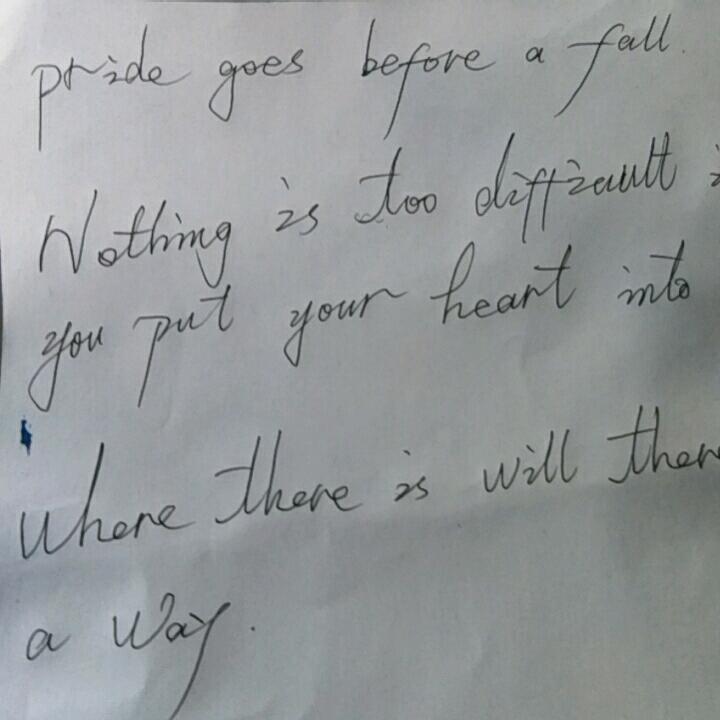 pride goes before a fall.
Nothing is too difficult
you put your heart into
Where there is will ther
a way.